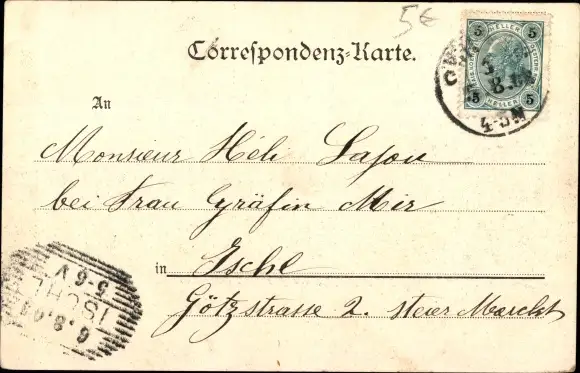 5€
Correspondenz-Karte.
5 HELLER 5
5 HELLER 5
3
8.
An
Monsieur Héli Lajou
bei Frau Gräfin Mir
in Ischl
Götzstrasse 2. steier Marckt
6.8.01
ISCHL
5-6 V